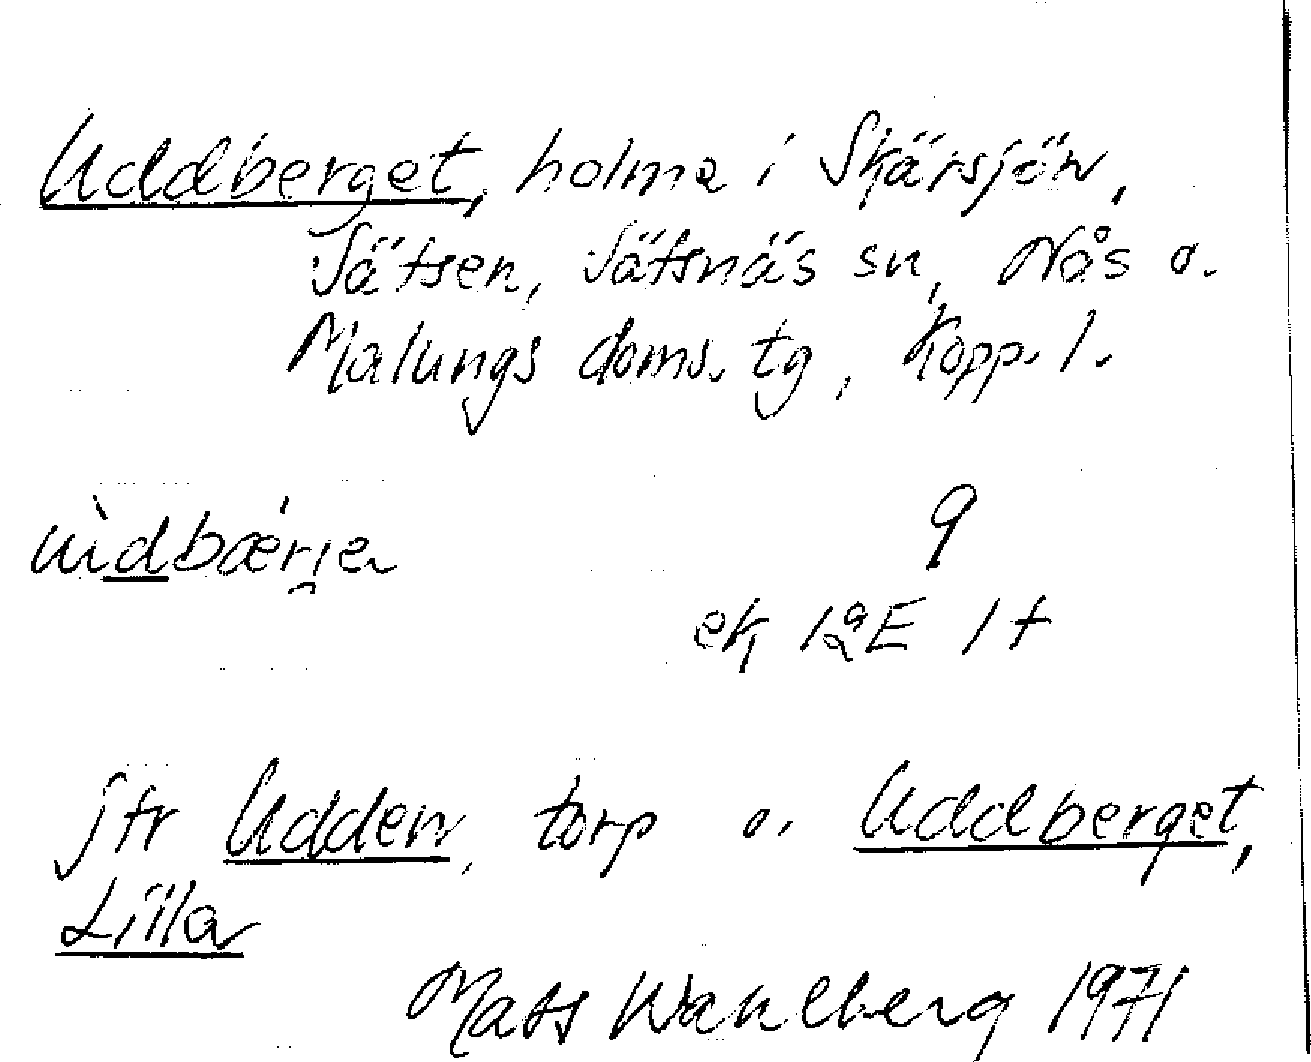 Uddberget, holme i Skärsjön,
Sätsen, Sätsnäs sn, Nås o.
Malungs doms. tg, Kopp. l.
9
ek 12E 1f
Jfr Udden, torp o. Uddberget,
Lilla
Mats Wahlberg 1971